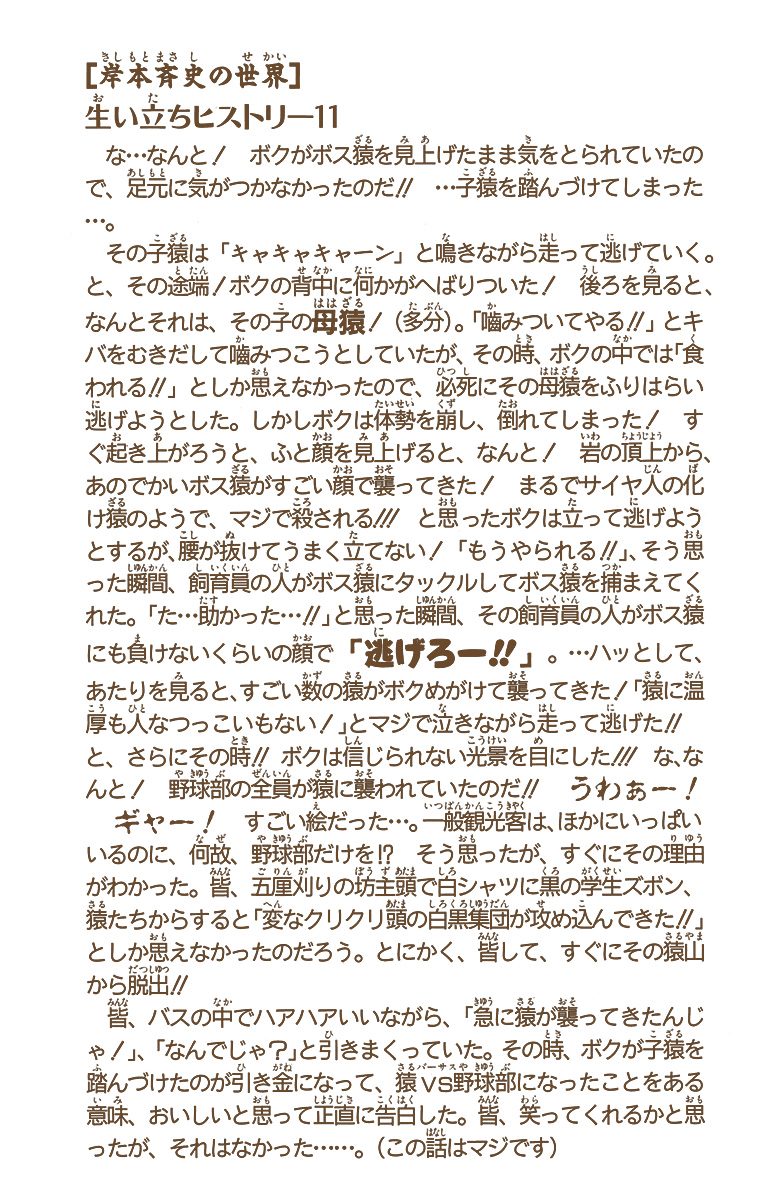 [岸本斉史の世界]
生い立ちヒストリー11
な…なんと！　ボクがボス猿を見上げたまま気をとられていたの
で、足元に気がつかなかったのだ!!　…子猿を踏んづけてしまった
…。
その子猿は「キャキャキャーン」と鳴きながら走って逃げていく。
と、その途端！ボクの背中に何かがへばりついた！　後ろを見ると、
なんとそれは、その子の母猿！（多分）。「嚙みついてやる!!」とキ
バをむきだして嚙みつこうとしていたが、その時、ボクの中では「食
われる!!」としか思えなかったので、必死にその母猿をふりはらい
逃げようとした。しかしボクは体勢を崩し、倒れてしまった！　す
ぐ起き上がろうと、ふと顔を見上げると、なんと！　岩の頂上から、
あのでかいボス猿がすごい顔で襲ってきた！　まるでサイヤ人の化
け猿のようで、マジで殺される!!!　と思ったボクは立って逃げよう
とするが、腰が抜けてうまく立てない！「もうやられる!!」、そう思
った瞬間、飼育員の人がボス猿にタックルしてボス猿を捕まえてく
れた。「た…助かった…!!」と思った瞬間、その飼育員の人がボス猿
にも負けないくらいの顔で「逃げろー!!」。…ハッとして、
あたりを見ると、すごい数の猿がボクめがけて襲ってきた！「猿に温
厚も人なつっこいもない！」とマジで泣きながら走って逃げた!!
と、さらにその時!!　ボクは信じられない光景を目にした!!!　な、な
んと！　野球部の全員が猿に襲われていたのだ!!　うわぁー！
ギャー！　すごい絵だった…。一般観光客は、ほかにいっぱい
いるのに、何故、野球部だけを!?　そう思ったが、すぐにその理由
がわかった。皆、五厘刈りの坊主頭で白シャツに黒の学生ズボン、
猿たちからすると「変なクリクリ頭の白黒集団が攻め込んできた!!」
としか思えなかったのだろう。とにかく、皆して、すぐにその猿山
から脱出!!
皆、バスの中でハアハアいいながら、「急に猿が襲ってきたんじ
ゃ！」、「なんでじゃ？」と引きまくっていた。その時、ボクが子猿を
踏んづけたのが引き金になって、猿VS野球部になったことをある
意味、おいしいと思って正直に告白した。皆、笑ってくれるかと思
ったが、それはなかった……。（この話はマジです）